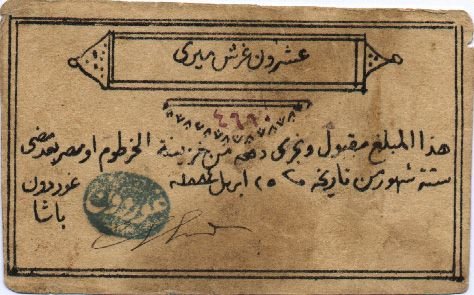 عشرون غرش ميرى
هذا المبلغ مقبول وتجرى دفعه من خزينة الخرطوم او مصر بعد مضى
ستة شهور من تاريخه ٢٥ ابريل ١٨٨٤
غوردون
باشا